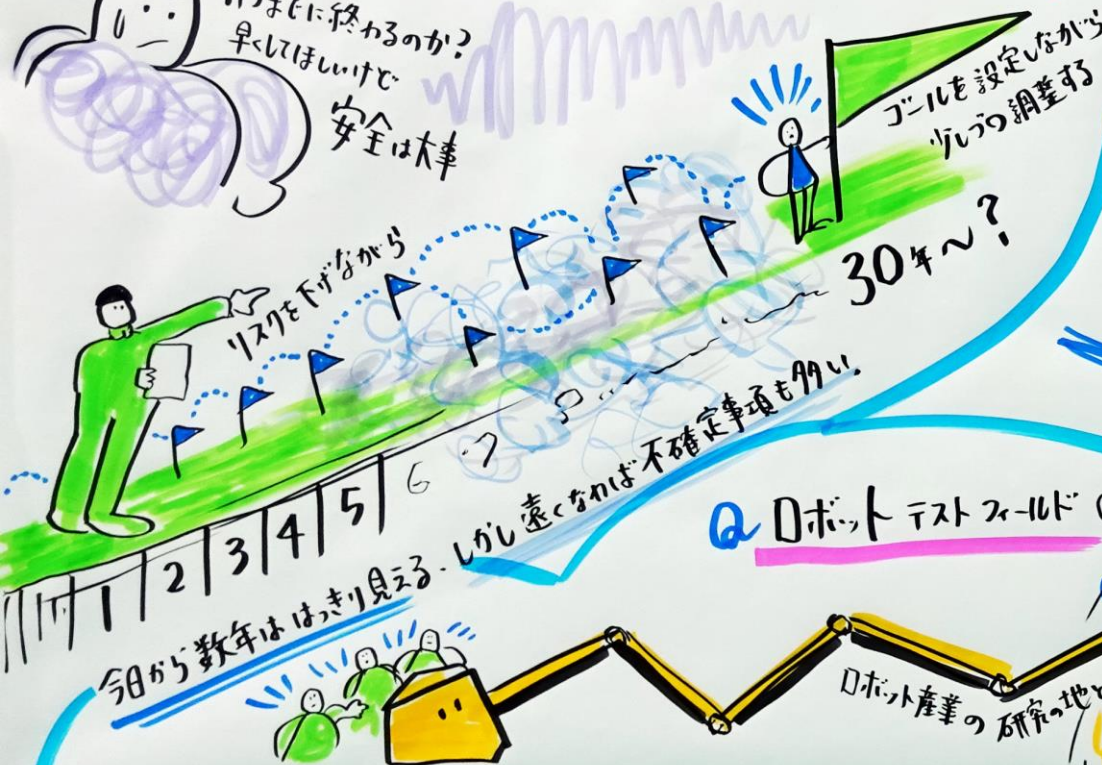 いつまでに終わるのか?
早くしてほしいけど
安全は大事
ゴールを設定しながら
少しづつ調整する
リスクを下げながら
30年〜?
1 2 3 4 5 6 7 8
今日から数年ははっきり見える、しかし遠くなれば不確定事項も多い。
Q ロボットテストフィールド
ロボット産業の研究の地と